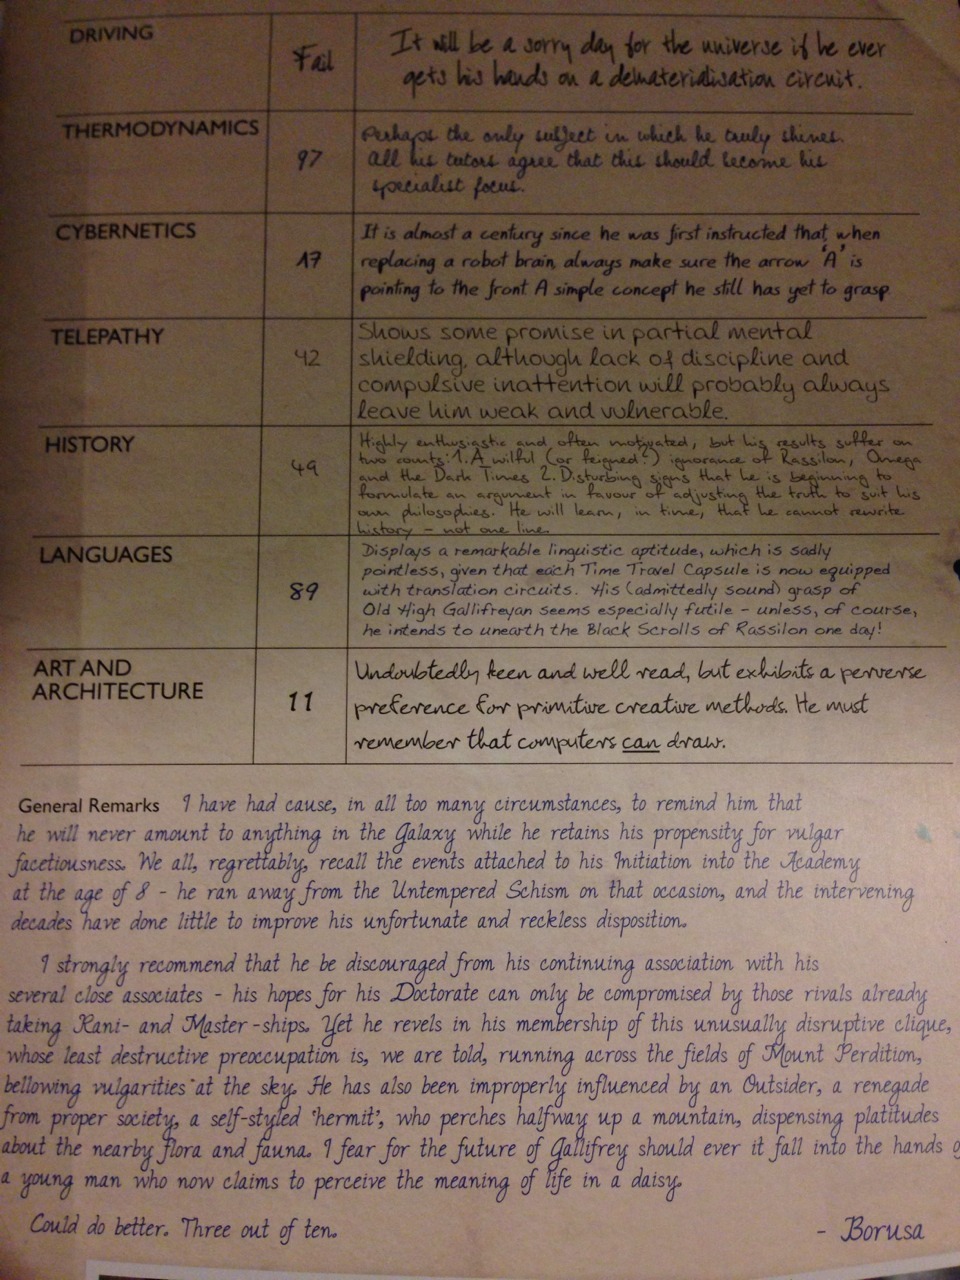 DRIVING
Fail
It will be a sorry day for the universe if he ever
gets his hands on a dematerialisation circuit.
THERMODYNAMICS
97
Perhaps the only subject in which he truly shines.
All his tutors agree that this should become his
specialist focus.
CYBERNETICS
17
It is almost a century since he was first instructed that, when
replacing a robot brain, always make sure the arrow 'A' is
pointing to the front. A simple concept he still has yet to grasp
TELEPATHY
42
Shows some promise in partial mental
shielding, although lack of discipline and
compulsive inattention will probably always
leave him weak and vulnerable.
HISTORY
49
Highly enthusiastic and often motivated, but his results suffer on
two counts: 1. A wilful (or feigned?) ignorance of Rassilon, Omega
and the Dark Times 2. Disturbing signs that he is beginning to
formulate an argument in favour of adjusting the truth to suit his
own philosophies. He will learn, in time, that he cannot rewrite
history - not one line.
LANGUAGES
89
Displays a remarkable linguistic aptitude, which is sadly
pointless, given that each Time Travel Capsule is now equipped
with translation circuits. His (admittedly sound) grasp of
Old High Gallifreyan seems especially futile - unless, of course,
he intends to unearth the Black Scrolls of Rassilon one day!
ART AND
ARCHITECTURE
11
Undoubtedly keen and well read, but exhibits a perverse
preference for primitive creative methods. He must
remember that computers can draw.
General Remarks I have had cause, in all too many circumstances, to remind him that
he will never amount to anything in the Galaxy while he retains his propensity for vulgar
facetiousness. We all, regrettably, recall the events attached to his Initiation into the Academy
at the age of 8 - he ran away from the Untempered Schism on that occasion, and the intervening
decades have done little to improve his unfortunate and reckless disposition.
I strongly recommend that he be discouraged from his continuing association with his
several close associates - his hopes for his Doctorate can only be compromised by those rivals already
taking Rani- and Master-ships. Yet he revels in his membership of this unusually disruptive clique,
whose least destructive preoccupation is, we are told, running across the fields of Mount Perdition,
bellowing vulgarities at the sky. He has also been improperly influenced by an Outsider, a renegade
from proper society, a self-styled 'hermit', who perches halfway up a mountain, dispensing platitudes
about the nearby flora and fauna. I fear for the future of Gallifrey should ever it fall into the hands o
a young man who now claims to perceive the meaning of life in a daisy.
Could do better. Three out of ten.
- Borusa